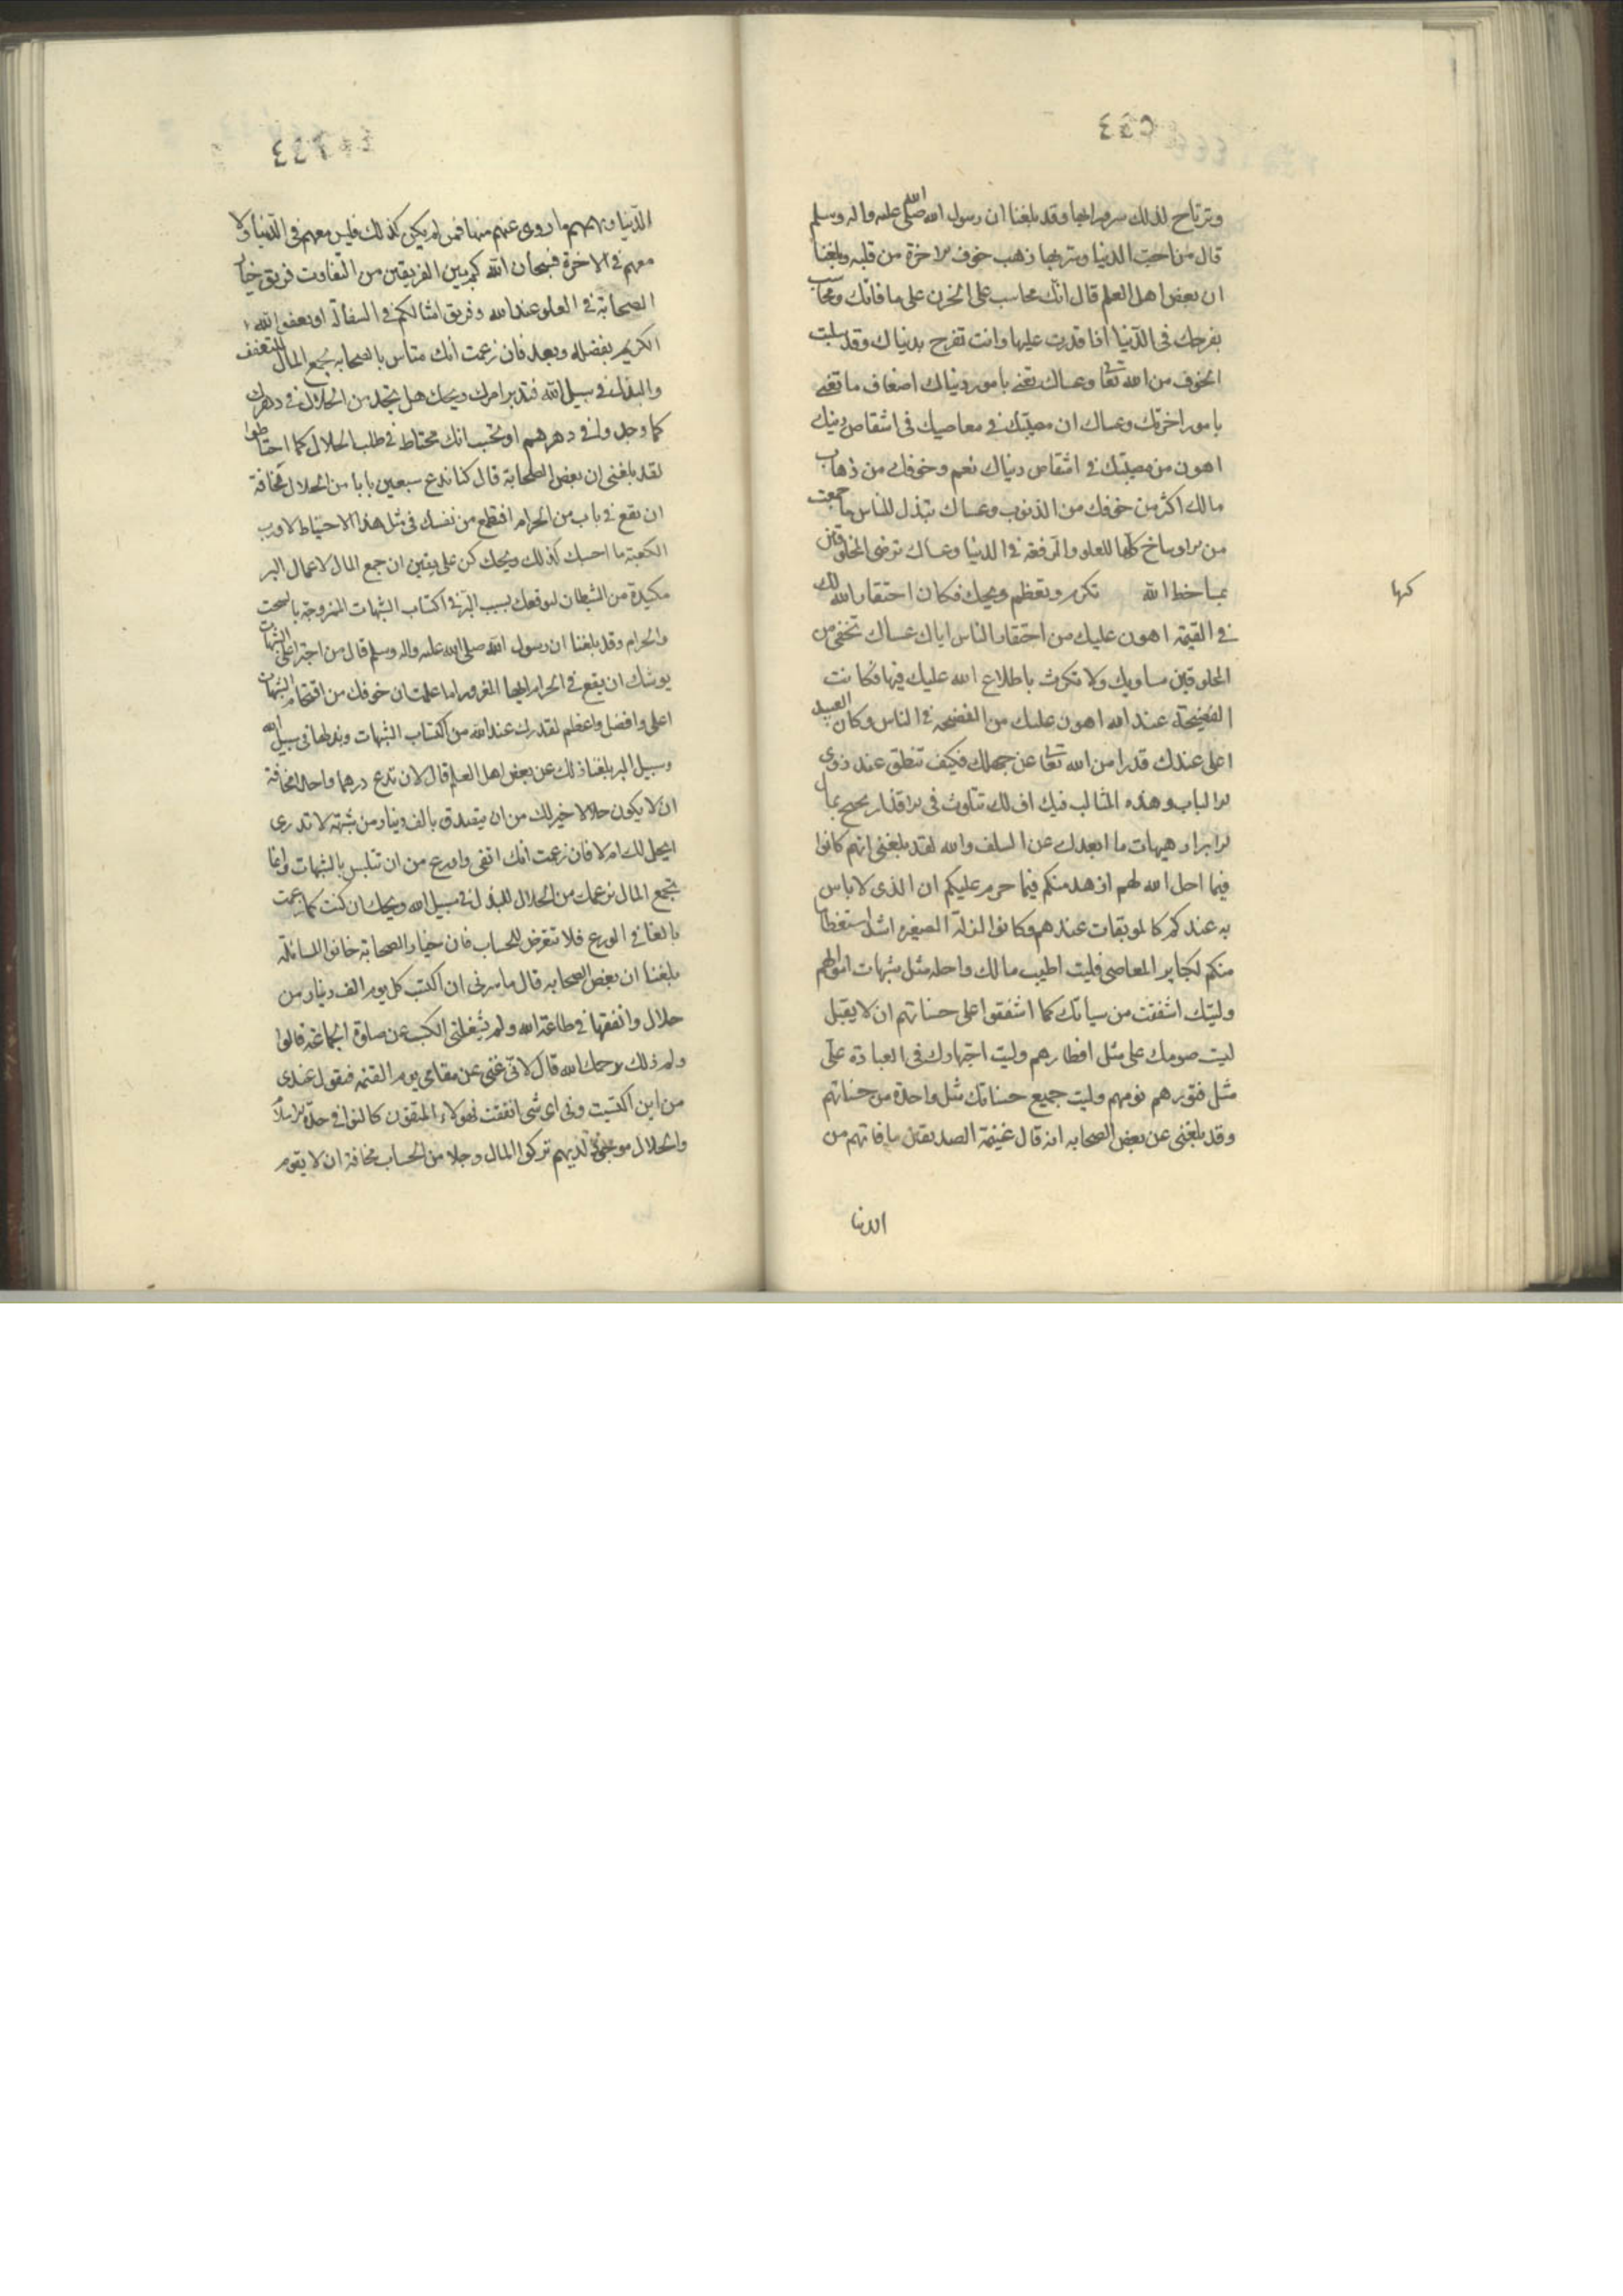 وترتاح لذلك سرورا بها وقد بلغنا ان رسول الله صلى الله عليه واله وسلم
قال من احب الدنيا وسر بها ذهب خوف الاخرة من قلبه وبلغنا
ان بعض اهل العلم قال انك محاسب على الحزن على ما فاتك ومحاسب
بفرحك في الدنيا اذا قدرت عليها وانت تفرح بدنياك وقد سلبت
الخوف من الله تعا وعساك تعنى بامور دنياك اضعاف ما تعنى
بامور اخرتك وعساك ان مصيبتك في معاصيك في انتقاص دينك
اهون من مصيبتك في انتقاص دنياك نعم وخوفك من ذهاب
مالك اكثر من خوفك من الذنوب وعساك تبذل للناس ما جمعت
من الاوساخ كلها للعلو والرفعة في الدنيا وعساك ترضى المخلوقين
بمساخط الله تكرم وتعظم ويحك فكان احتقار الله لك
كها
في القيمة اهون عليك من احتقار الناس اياك عساك تخفى من
المخلوقين مساويك ولا تكرث باطلاع الله عليك فيها فكانت
الفضيحة عند الله اهون عليك من الفضيحه في الناس وكان العبيد
اعلى عندك قدرا من الله تعا عن جهلك فكيف تنطق عند ذوى
الالباب وهذه المثالب فيك اف لك تتلوث في الاقذار وتحتج بمال
الابرار هيهات ما ابعدك عن السلف والله لقد بلغنى انهم كانوا
فيما احل الله لهم ازهد منكم فيما حرم عليكم ان الذى لا باس
به عندكم كالموبقات عندهم وكانوا للزلة الصغيره اشد استعظاما
منكم لكباير المعاصى فليت اطيب مالك واحله مثل شبهات اموالهم
وليتك اشفقت من سياتك كما اشفقوا على حسناتهم ان لا يقبل
ليت صومك على مثل افطارهم وليت اجتهادك في العبادة على
مثل فتورهم ونومهم وليت جميع حسناتك مثل واحدة من حسناتهم
وقد بلغنى عن بعض الصحابه انه قال غنيمة الصديقين ما فاتهم من
الدنا
الدنيا ونهمهم ما زوى عنهم منها فمن لم يكن كذلك فليس معهم في الدنيا ولا
معهم في الاخرة فسبحان الله كم بين الفريقين من التفاوت فريق خيار
الصحابة في العلو عند الله وفريق امثالكم في السفالة او يعفو الله
الكريم بفضله وبعد فان زعمت انك متأس بالصحابه بجمع المال للتعفف
والبذل في سبيل الله فتدبر امرك ويحك هل تجد من الحلال في دهرك
كما وجدوا في دهرهم او تحسب انك محتاط في طلب الحلال كما احتاطوا
لقد بلغنى ان بعض الصحابة قال كنا ندع سبعين بابا من الحلال مخافة
ان نقع في باب من الحرام افتطمع من نفسك في مثل هذا الاحتياط لا ورب
الكعبة ما احسبك كذلك ويحك كن على يقين ان جمع المال لاعمال البر
مكيدة من الشيطان ليوقعك بسبب البر في اكتساب الشبهات الممزوجة بالسحت
والحرام وقد بلغنا ان رسول الله صلى الله عليه واله وسلم قال من اجترا على الشبهات
يوشك ان يقع في الحرام ايها المغرور اما علمت ان خوفك من اقتحام الشبهات
اعلى وافضل واعظم لقدرك عند الله من اكتساب الشبهات وبذلها في سبيل الله
وسبيل البر بلغنا ذلك عن بعض اهل العلم قال لان تدع درهما واحدا مخافة
ان لا يكون حلالا خير لك من ان تتصدق بالف دينار من شبهة لا تدرى
ايحل لك ام لا فان زعمت انك اتقى واورع من ان تتلبس بالشبهات وانما
تجمع المال بزعمك من الحلال للبذل في سبيل الله ويحك ان كنت كما زعمت
بالغا في الورع فلا تتعرض للحساب فان خيار الصحابة خافوا المسائلة
بلغنا ان بعض الصحابه قال ما سرنى ان اكتسب كل يوم الف دينار من
حلال وانفقها في طاعة الله ولم يشغلنى الكسب عن صلوة الجماعة قالوا
ولم ذلك رحمك الله قال لانى غنى عن مقامى يوم القيمه فيقول عبدى
من اين اكتسبت وفى اى شى انفقت فهولاء المتقون كانوا في جدة الاسلام
والحلال موجود لديهم تركوا المال وجلا من الحساب مخافة ان لا يقوم